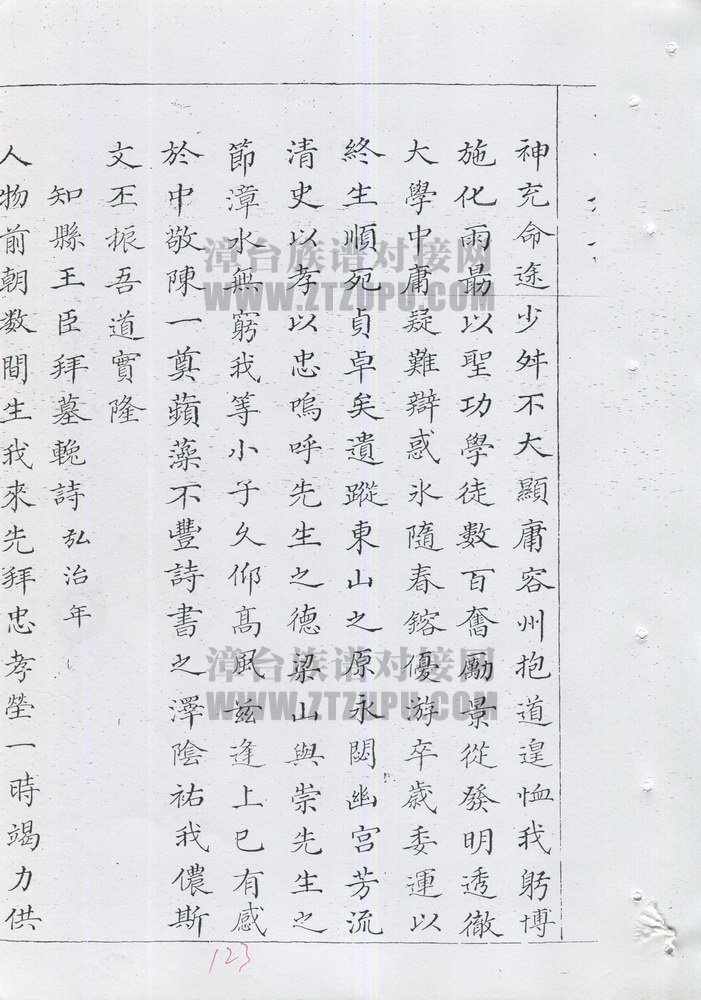 神充命途少舛不大顯庸容州抱道遑恤我躬博
施化雨最以聖功學徒數百奮勵景從發明透徹
大學中庸疑難辯惑氷隨春鎔優游卒歲委運以
終生順死貞卓矣遺蹤東山之原永閟幽宮芳流
清史以孝以忠嗚呼先生之德梁山與崇先生之
節漳水無窮我等小子久仰高風兹逢上巳有感
於中敬陳一奠蘋藻不豐詩書之澤陰祐我儂斯
文丕振吾道實隆
知縣王臣拜墓輓詩弘治年
人物前朝数間生我來先拜忠孝塋一時竭力供
漳台族谱对接网
WWW.ZTZUPU.COM
漳台族谱对接网
WWW.ZTZUPU.COM
123